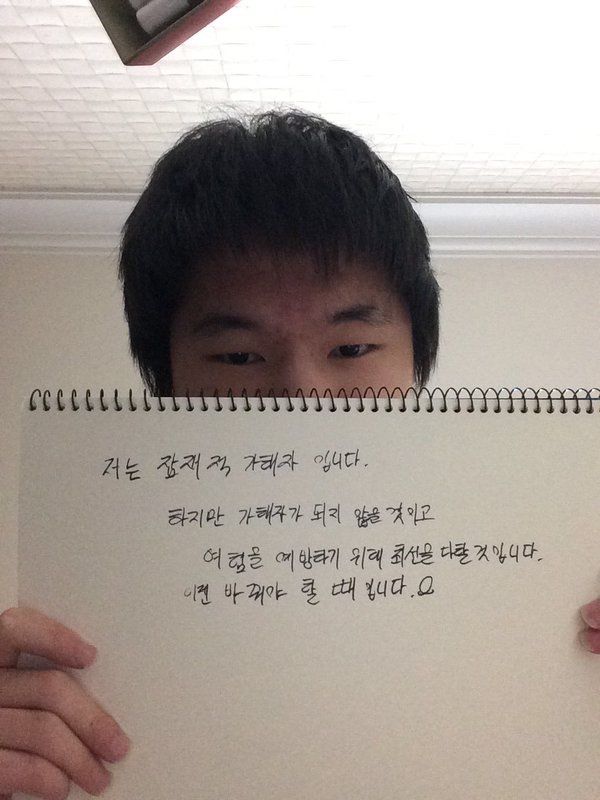 저는 잠재적 가해자 입니다.
하지만 가해자가 되지 않을 것이고
여혐을 예방하기 위해 최선을 다할 것입니다.
이젠 바꿔야 할 때 입니다.